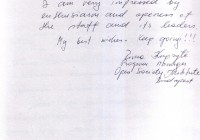 I am very impressed by
enthusiasm and openness of
the staff and its leaders
My best wishes. Keep going!!!
Program Manager
Open Society Institute
Budapest